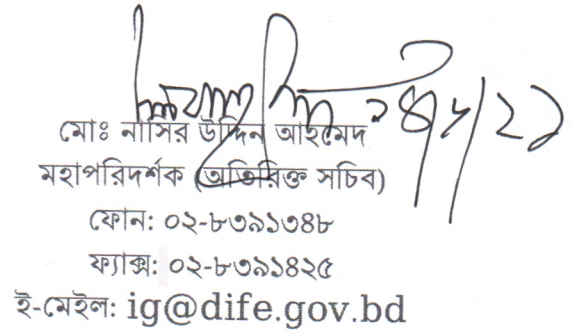 মোঃ নাসির উদ্দিন আহমেদ
মহাপরিদর্শক (অতিরিক্ত সচিব)
ফোন: ০২-৮৩৯১৩৪৮
ফ্যাক্স: ০২-৮৩৯১৪২৫
ই-মেইল: ig@dife.gov.bd